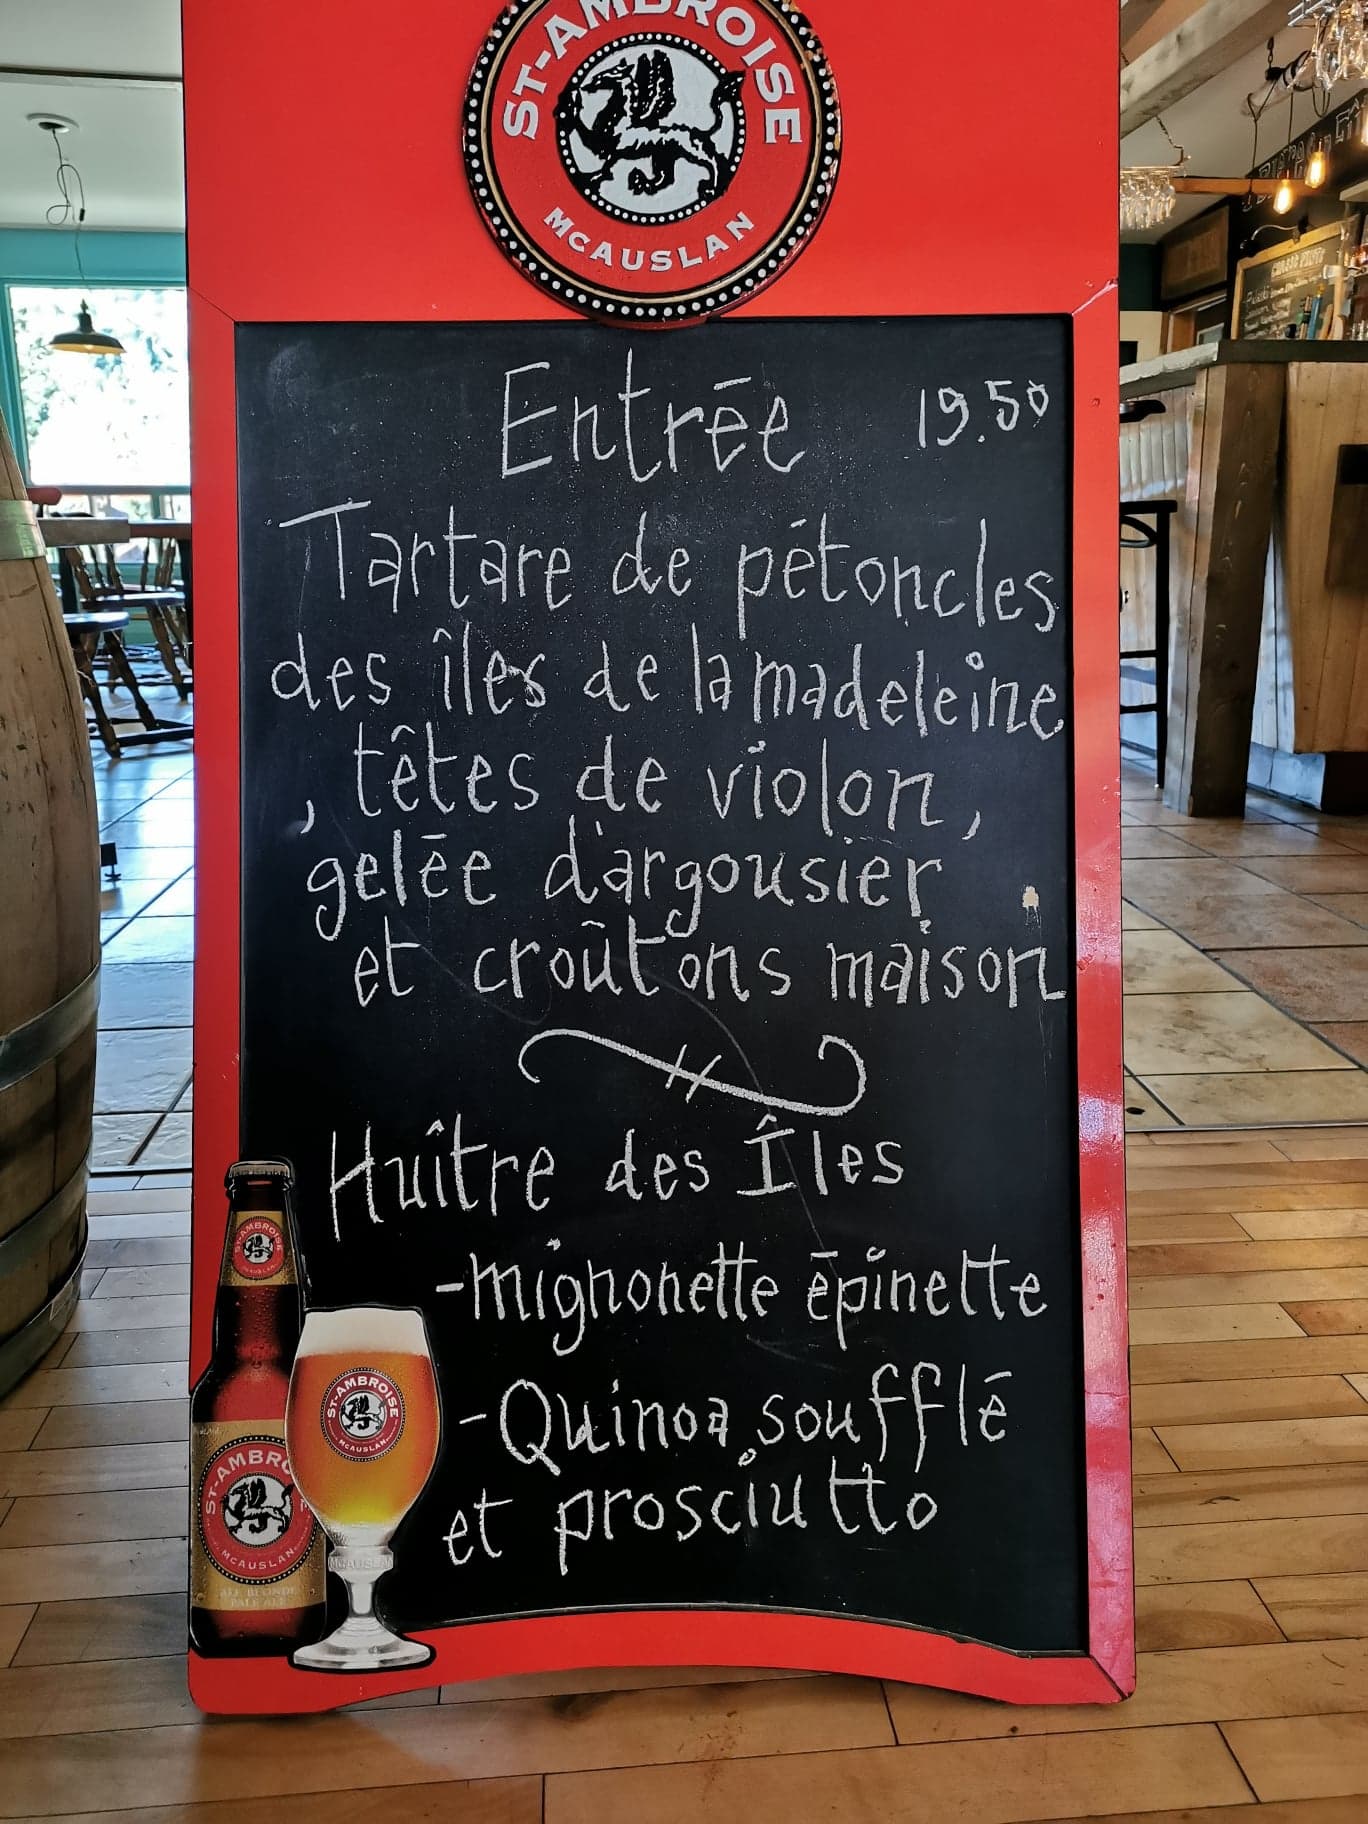 ST-AMBROISE
McAUSLAN
Entrée 19.50
Tartare de pétoncles
des îles de la madeleine
, têtes de violon,
gelée d'argousier
et croûtons maison
Huître des Îles
-mignonette épinette
-Quinoa soufflé
et prosciutto
ST-AMBROISE
McAUSLAN
ST-AMBROISE
McAUSLAN
McAUSLAN
ST-AMBRO
McAUSLAN
ALE BLONDE
PALE ALE